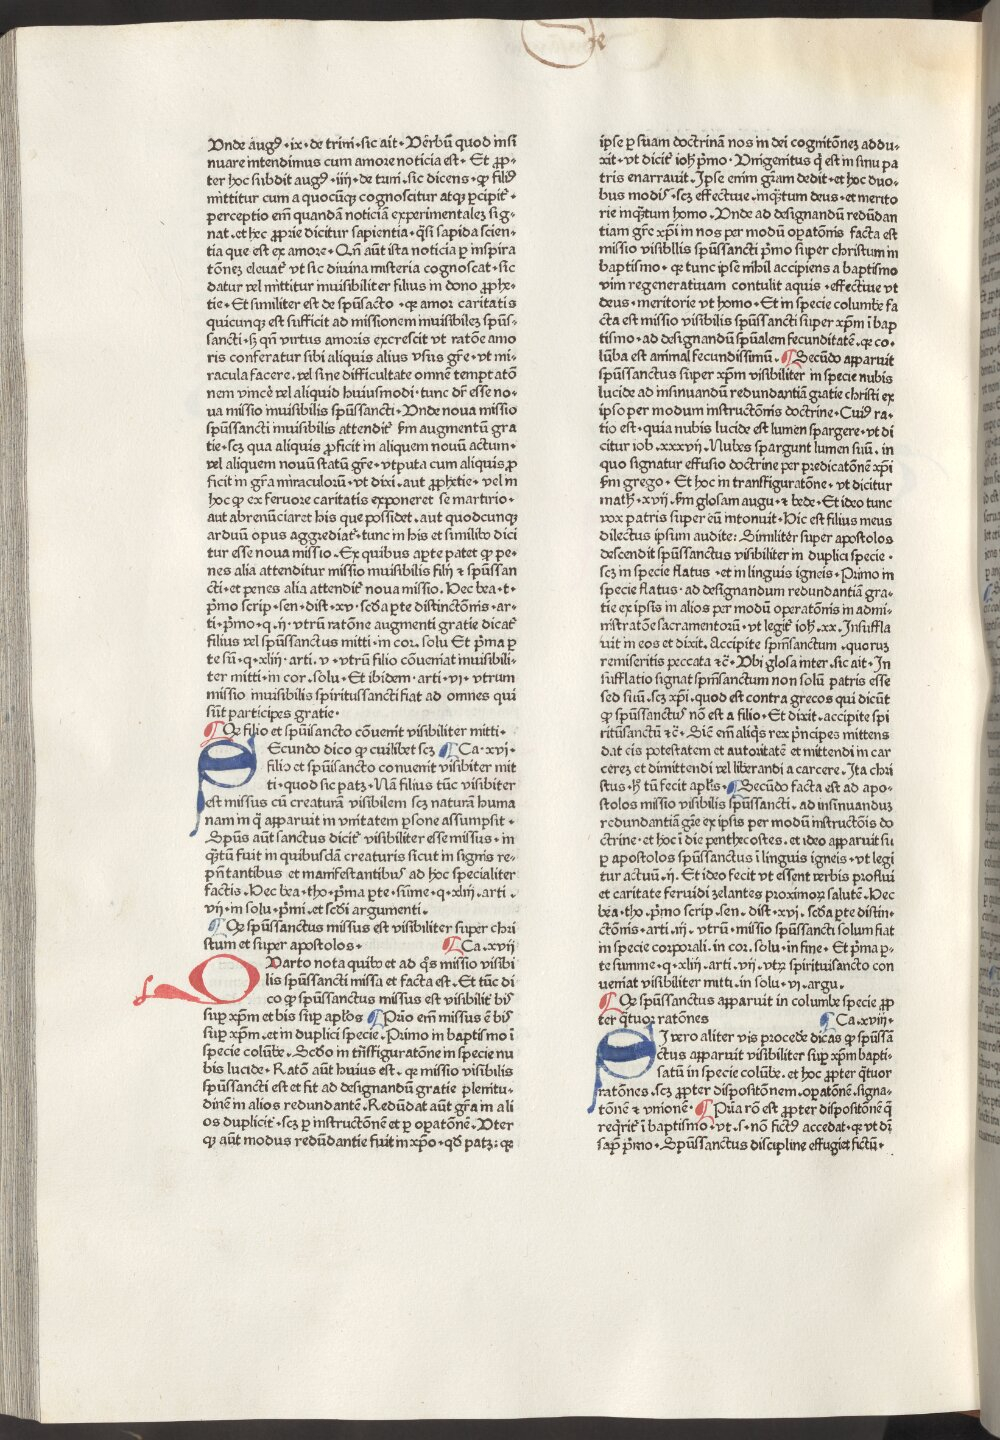 Vnde augꝰ·ix·de trini·sic ait·Verbū quod insi
nuare intendimus cum amore noticia est·Et ꝓp-
ter hoc subdit augꝰ·iiij·de trini·sic dicens·ꝙ filiꝰ
mittitur cum a quocūqꝫ cognoscitur atqꝫ ꝑcipit᷑·
perceptio em̄ quandā noticiā experimentalez sig-
nat·et hec ꝓprie dicitur sapientia·q̄si sapida scien-
tia que est ex amore·Qn̄ aūt ista noticia ꝑ inspira
tōnez eleuat᷑ vt sic diuina misteria cognoscat·sic
datur vel mittitur inuisibiliter filius in dono ꝓphe-
tie·Et similiter est de spūsācto·ꝙ amor caritatis
quicunqꝫ est sufficit ad missionem inuisibilez spūs-
sancti·sꝫ qn̄ virtus amoris excrescit vt ratōe amo
ris conferatur sibi aliquis alius vsus grē·vt mi-
racula facere·vel sine difficultate omnē temptatō
nem vincē vel aliquid huiusmodi·tunc dr̄ esse no-
ua missio inuisibilis spūssancti·Vnde noua missio
spūssancti inuisibilis attendit᷑ fm augmentū gra
tie·scꝫ qua aliquis ꝓficit in aliquem nouū actum·
vel aliquem nouū statū grē·vtputa cum aliquis ꝓ
ficit in grā miraculorū·vt dixi·aut ꝓphetie·vel in
hoc ꝙ ex feruore caritatis exponeret se martirio·
aut abrenūciaret his que possidet·aut quodcunqꝫ
arduū opus aggrediat᷑·tunc in his et similibꝰ dici
tur esse noua missio·Ex quibus aꝑte patet ꝙ pe-
nes alia attenditur missio inuisibilis filij ⁊ spūssan
cti·et penes alia attendit᷑ noua missio·Hec bea·t·
p̄mo scrip·sen·dist·xv·scd̄a ꝑte distinctōnis·ar-
ti·p̄mo·q·ij·vtrū ratōne augmenti gratie dicat᷑
filius vel spūssanctus mitti·in cor·solu Et p̄ma ꝑ
te sū·q·xliij·arti·v·vtrū filio cōueniat inuisibili-
ter mitti·in cor·solu·Et ibidem·arti·vj·vtrum
missio inuisibilis spiritussancti fiat ad omnes qui
sūt participes gratie·
¶Qꝙ filio et spūisancto cōuenit visibiliter mitti·
Secundo dico ꝙ cuilibet scꝫ ¶Ca·xvj·
filio et spūisancto conuenit visibiter mit
ti·quod sic patꝫ·Nā filius tūc visibiter
est missus cū creaturā visibilem scꝫ naturā huma
nam in q̄ apparuit in vnitatem ꝑsone assumpsit·
Spūs aūt sanctus dicit᷑ visibiliter esse missus·in
q̄tū fuit in quibusdā creaturis sicut in signis re-
pn̄tantibus et manifestantibꝰ ad hoc specialiter
factis·Hec bea·tho·p̄ma ꝑte·sūme·q·xliij·arti·
vij·in solu·p̄mi·et scd̄i argumenti·
¶Qꝙ spūssanctus missus est visibiliter super chri
stum et super apostolos· ¶Ca·xvij
Quarto nota quibꝰ et ad q̄s missio visibi
lis spūssancti missa et facta est·Et tūc di
co ꝙ spūssanctus missus est visibilit᷑ bis
suꝑ xp̄m et bis suꝑ apl̄os ¶Prīo em̄ missus ē bis
suꝑ xp̄m·et in duplici specie·Primo in baptismo ī
specie colūbe·Scd̄o in trāsfiguratōne in specie nu
bis lucide·Ratō aūt huius est·qꝫ missio visibilis
spūssancti est et fit ad designandū gratie plenitu-
dinē in alios redundantē·Redūdat aūt grā in ali
os duplicit᷑·scꝫ ꝑ instructōnē et ꝑ oꝑatōnē·Vter
qꝫ aūt modus redūdantie fuit in xp̄o·qd̄ patꝫ: qꝫ
ipse ꝑ suam doctrinā nos in dei cognitōnez addu-
xit·vt dicit᷑ ioh̄ p̄mo·Vnigenitus q̄ est in sinu pa
tris enarrauit·Ipse enim grām dedit·et hoc duo-
bus modis·scꝫ effectiue·inq̄tum deus·et merito
rie inq̄tum homo·Vnde ad designandū redūdan
tiam grē xp̄i in nos per modū opatōnis facta est
missio visibilis spūssancti p̄mo super christum in
baptismo·qꝫ tunc ipse nihil accipiens a baptismo
vim regeneratiuam contulit aquis·effectiue vt
deus·meritorie vt homo·Et in specie columbe fa
cta est missio visibilis spūssancti super xp̄m ī bap
tismo·ad designandū spūalem fecunditatē·qꝫ co-
lūba est animal fecundissimū·¶Secūdo apparuit
spūssanctus super xp̄m visibiliter in specie nubis
lucide ad insinuandū redundantiā gratie christi ex
ipso per modum instructōnis doctrine·Cuiꝰ ra-
tio est·quia nubis lucide est lumen spargere·vt di
citur iob·xxxvij·Nubes spargunt lumen suū·in
quo signatur effusio doctrine per predicatōnē xp̄i
fm grego·Et hoc in transfiguratōne·vt dicitur
math·xvij·fm glosam augu·⁊ bede·Et ideo tunc
vox patris super eū intonuit·Hic est filius meus
dilectus ipsum audite: Similiter super apostolos
descendit spūssanctus visibiliter in duplici specie·
scꝫ in specie flatus·et in linguis igneis·Primo in
specie flatus·ad designandum redundantiā gra-
tie ex ipsis in alios per modū operatōnis in admi-
nistratōe sacramentorū·vt legit᷑ ioh·xx·Insuffla
uit in eos et dixit·Accipite spm̄sanctum·quorum
remiseritis peccata ⁊c̄·Vbi glosa inter·sic ait·In
sufflatio signat spm̄sanctum non solū patris esse
sed suū·scꝫ xp̄i·quod est contra grecos qui dicūt
ꝙ spūssanctus nō est a filio·Et dixit·accipite spi
ritūsanctū ⁊c̄·Sic em̄ aliq̄s rex p̄ncipes mittens
dat eis potestatem et autoritatē et mittendi in car
cerez et dimittendi vel liberandi a carcere·Ita chri
stus·h̄ tū fecit apl̄is·¶Secūdo facta est ad apo-
stolos missio visibilis spūssancti·ad insinuanduꝫ
redundantiā grē ex ipsis per modū instructōis do
ctrine·et hoc ī die penthecostes·et ideo apparuit su
ꝑ apostolos spūssanctus ī linguis igneis·vt legi
tur actuū·ij·Et ideo fecit vt essent verbis proflui
et caritate feruidi zelantes proximoꝝ salutē·Hec
bea·tho·p̄mo scrip·sen·dist·xvj·scd̄a ꝑte distin-
ctōnis·arti·iij·vtrū·missio spūssancti solum fiat
in specie corporali·in cor·solu·in fine·Et p̄ma ꝑ-
te summe·q·xliij·arti·vij·vtꝝ spirituisancto con
ueniat visibiliter mitti·in solu·vj·argu·
¶Qꝙ spūssanctus apparuit in columbe specie ꝓp
ter q̄tuor ratōnes ¶Ca·xviij·
Si vero aliter vis procedē dicas ꝙ spūssā
ctus apparuit visibiliter suꝑ xp̄m bapti-
satū in specie colūbe·et hoc ꝓpter q̄tuor
ratōnes·scꝫ ꝓpter dispositōnem·oꝑatōnē·signa-
tōnē ⁊ vnionē·¶Prīa rō est ꝓpter dispositōnē q̄
req̄rit᷑ ī baptismo·vt·s·nō fictꝰ accedat·qꝫ vt dr̄
sap̄ p̄mo·Spūssanctus discipline effugiet fictū·